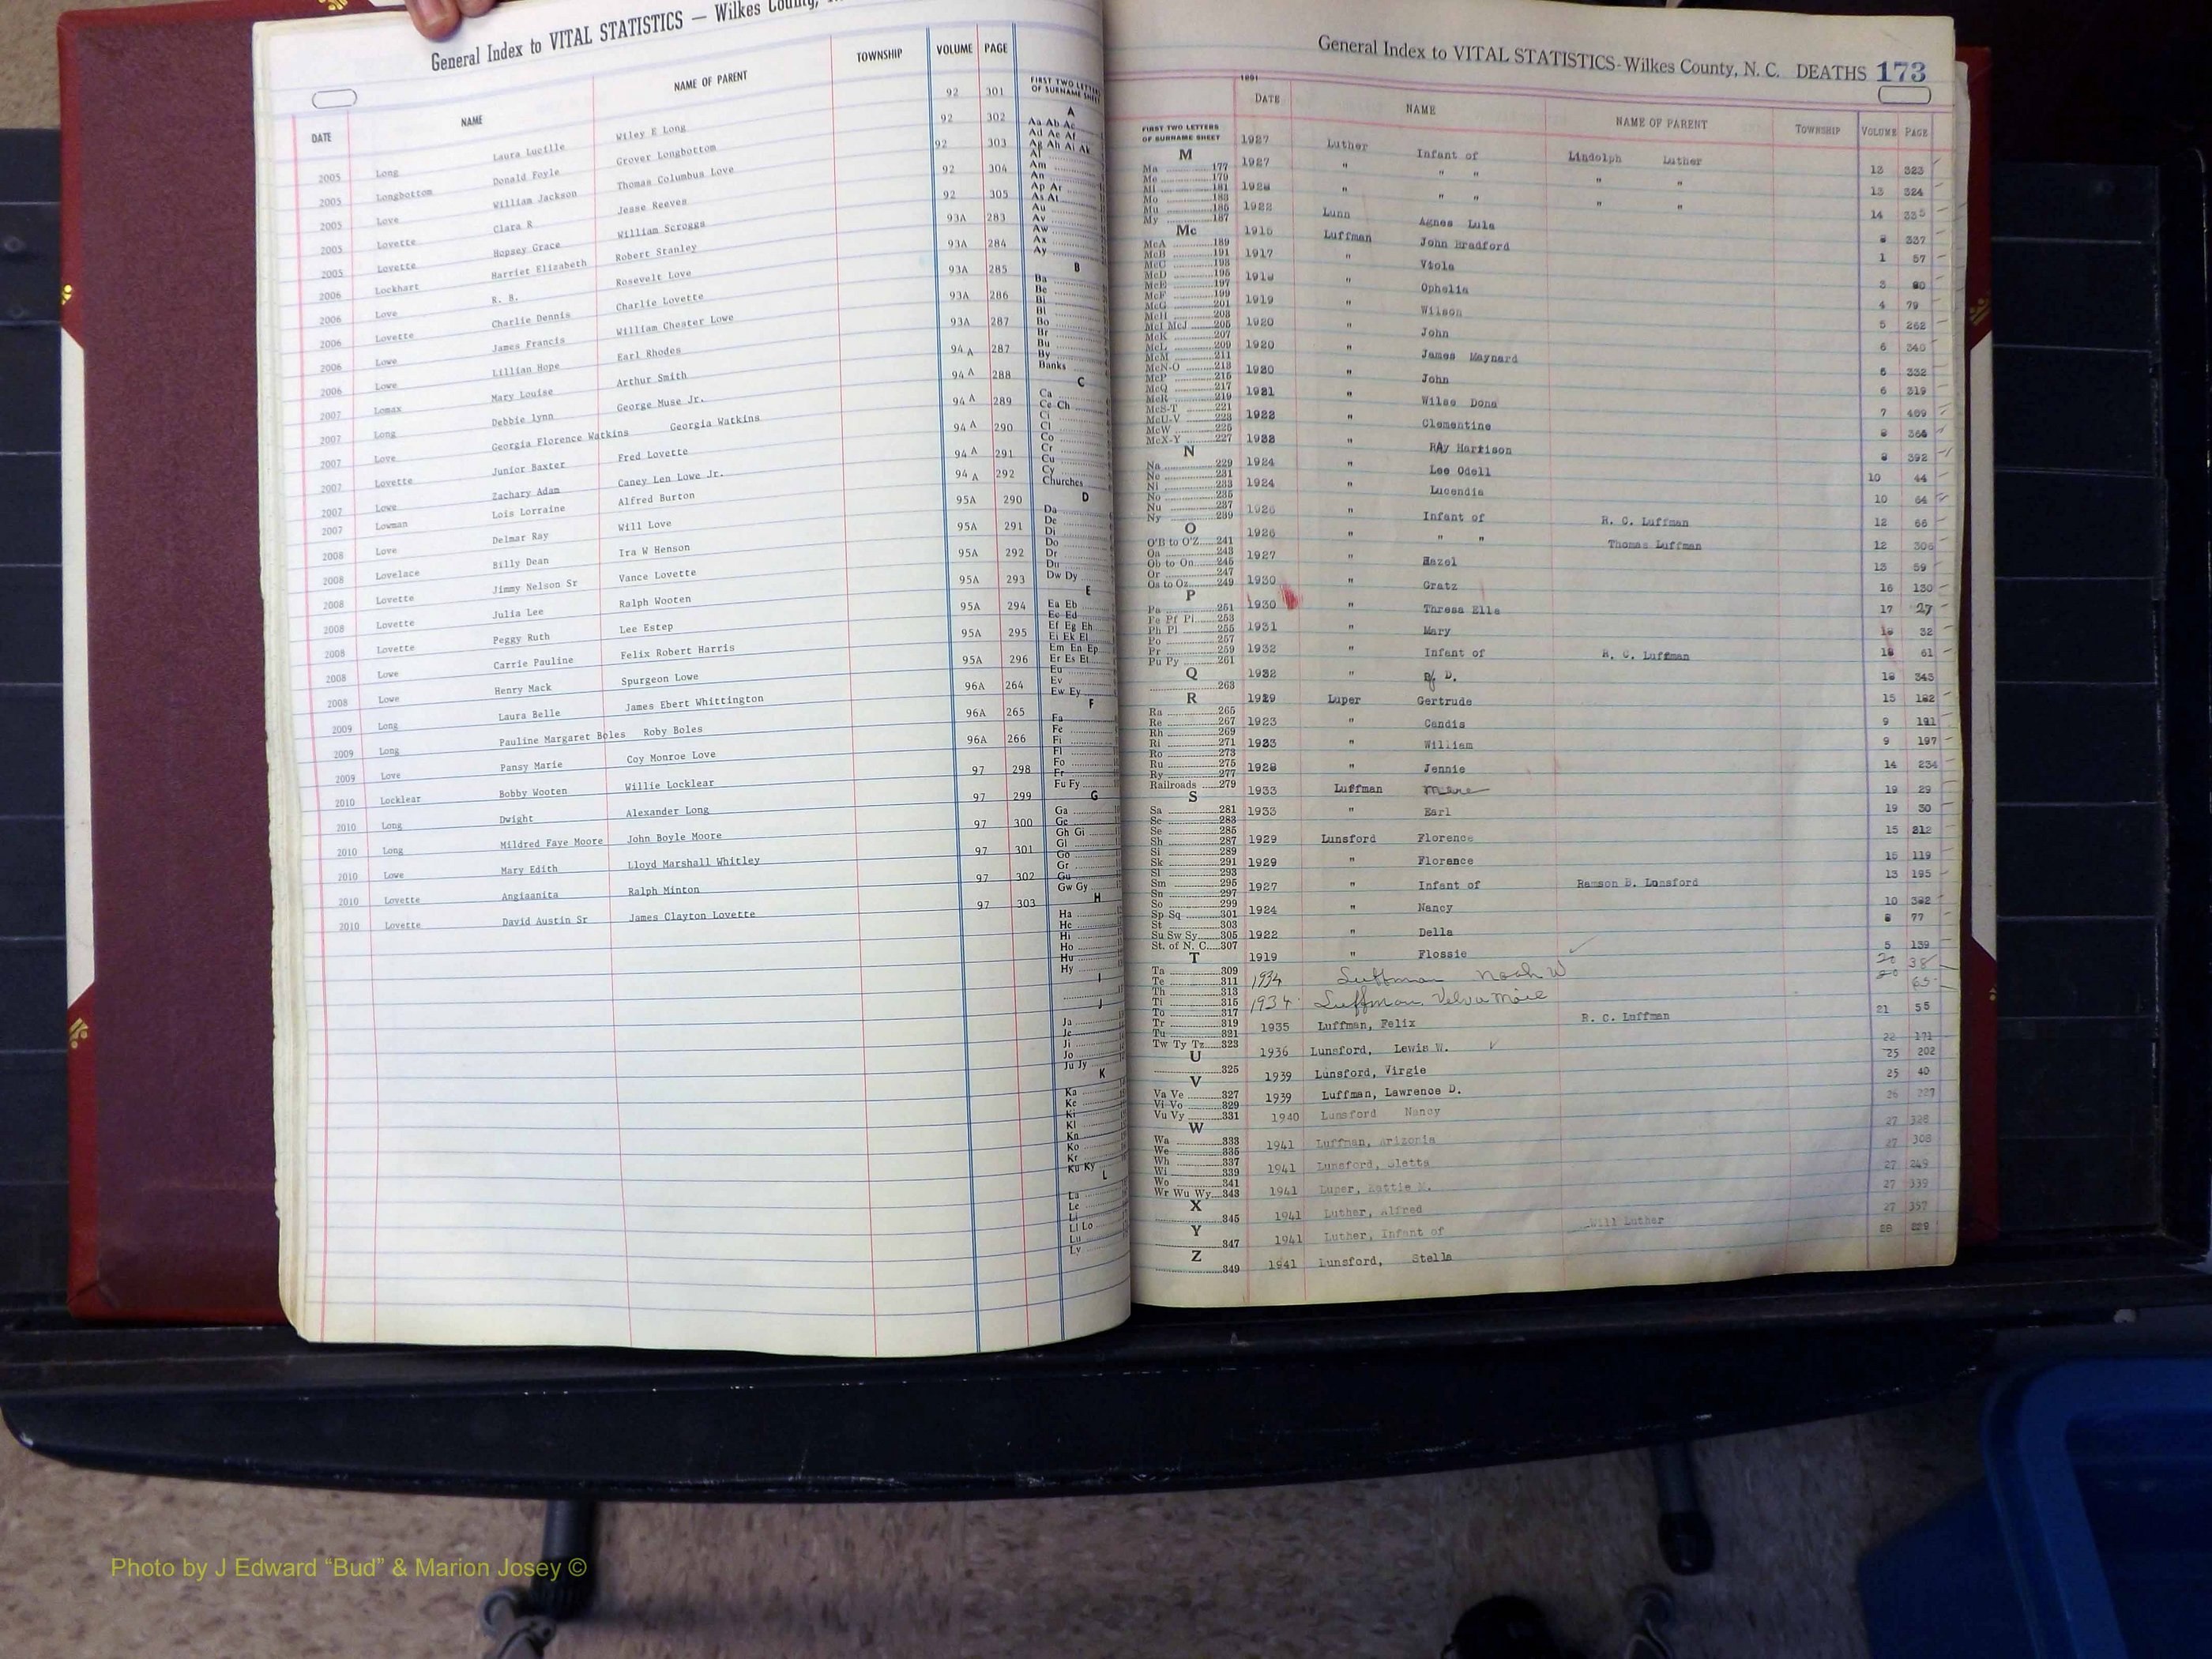 General Index to VITAL STATISTICS — Wilkes County,
DATE NAME NAME OF PARENT TOWNSHIP VOLUME PAGE
2005 Long Laura Lucille Wiley E Long 92 301
2005 Longbottom Donald Foyle Grover Longbottom 92 302
2005 Love William Jackson Thomas Columbus Love 92 303
2005 Lovette Clara R Jesse Reeves 92 304
2005 Lovette Hopsey Grace William Scroggs 92 305
2006 Lockhart Harriet Elizabeth Robert Stanley 93A 283
2006 Love R. B. Rosevelt Love 93A 284
2006 Lovette Charlie Dennis Charlie Lovette 93A 285
2006 Lowe James Francis William Chester Lowe 93A 286
2006 Lowe Lillian Hope Earl Rhodes 93A 287
2007 Lomax Mary Louise Arthur Smith 94 A 287
2007 Long Debbie lynn George Muse Jr. 94 A 288
2007 Love Georgia Florence Watkins Georgia Watkins 94 A 289
2007 Lovette Junior Baxter Fred Lovette 94 A 290
2007 Lowe Zachary Adam Caney Len Lowe Jr. 94 A 291
2007 Lowman Lois Lorraine Alfred Burton 94 A 292
2008 Love Delmar Ray Will Love 95A 290
2008 Lovelace Billy Dean Ira W Henson 95A 291
2008 Lovette Jimmy Nelson Sr Vance Lovette 95A 292
2008 Lovette Julia Lee Ralph Wooten 95A 293
2008 Lovette Peggy Ruth Lee Estep 95A 294
2008 Lowe Carrie Pauline Felix Robert Harris 95A 295
2008 Lowe Henry Mack Spurgeon Lowe 95A 296
2009 Long Laura Belle James Ebert Whittington 96A 264
2009 Long Pauline Margaret Boles Roby Boles 96A 265
2009 Love Pansy Marie Coy Monroe Love 96A 266
2010 Locklear Bobby Wooten Willie Locklear 97 298
2010 Long Dwight Alexander Long 97 299
2010 Long Mildred Faye Moore John Boyle Moore 97 300
2010 Lowe Mary Edith Lloyd Marshall Whitley 97 301
2010 Lovette Angiaanita Ralph Minton 97 302
2010 Lovette David Austin Sr James Clayton Lovette 97 303
FIRST TWO LETTERS
OF SURNAME SHEET
A
Aa Ab Ac
Ad Ae Af
Ag Ah Ai Ak
Al
Am
An
Ap Ar
As At
Au
Av
Aw
Ax
Ay
B
Ba
Be
Bi
Bl
Bo
Br
Bu
By
Banks
C
Ca
Ce Ch
Ci
Cl
Co
Cr
Cu
Cy
Churches
D
Da
De
Di
Do
Dr
Du
Dw Dy
E
Ea Eb
Ec Ed
Ef Eg Eh
Ei Ek El
Em En Ep
Er Es Et
Eu
Ev
Ew Ey
F
Fa
Fe
Fi
Fl
Fo
Fr
Fu Fy
G
Ga
Ge
Gh Gi
Gl
Go
Gr
Gu
Gw Gy
H
Ha
He
Hi
Ho
Hu
Hy
I
J
Ja
Je
Ji
Jo
Ju Jy
K
Ka
Ke
Ki
Kl
Kn
Ko
Kr
Ku Ky
L
La
Le
Li
Ll Lo
Lu
Ly
General Index to VITAL STATISTICS-Wilkes County, N. C. DEATHS 173
DATE NAME NAME OF PARENT TOWNSHIP VOLUME PAGE
FIRST TWO LETTERS
OF SURNAME SHEET
M
Ma 177
Me 179
Mi 181
Mo 183
Mu 185
My 187
Mc
McA 189
McB 191
McC 193
McD 195
McE 197
McF 199
McG 201
McH 203
McI McJ 205
McK 207
McL 209
McM 211
McN-O 213
McP 215
McQ 217
McR 219
McS-T 221
McU-V 223
McW 225
McX-Y 227
N
Na 229
Ne 231
Ni 233
No 235
Nu 237
Ny 239
O
O'B to O'Z 241
Oa 243
Ob to On 245
Or 247
Os to Oz 249
P
Pa 251
Pe Pf Pi 253
Ph Pl 255
Po 257
Pr 259
Pu Py 261
Q
263
R
Ra 265
Re 267
Rh 269
Ri 271
Ro 273
Ru 275
Ry 277
Railroads 279
S
Sa 281
Sc 283
Se 285
Sh 287
Si 289
Sk 291
Sl 293
Sm 295
Sn 297
So 299
Sp Sq 301
St 303
Su Sw Sy 305
St. of N. C. 307
T
Ta 309
Te 311
Th 313
Ti 315
To 317
Tr 319
Tu 321
Tw Ty Tz 323
U
325
V
Va Ve 327
Vi Vo 329
Vu Vy 331
W
Wa 333
We 335
Wh 337
Wi 339
Wo 341
Wr Wu Wy 343
X
345
Y
347
Z
349
1927 Luther Infant of Lindolph Luther 13 323
1927 " " " " " 13 324
1928 " " " " " 14 335
1922 Lunn Agnes Lula 8 337
1916 Luffman John Bradford 1 57
1917 " Viola 3 80
1918 " Ophelia 4 79
1919 " Wilson 5 262
1920 " John 6 340
1920 " James Maynard 6 332
1920 " John 6 319
1921 " Wilse Dona 7 409
1922 " Clementine 8 366
1922 " RAy Harrison 8 392
1924 " Lee Odell 10 44
1924 " Lucendia 10 64
1926 " Infant of R. C. Luffman 12 66
1926 " " " Thomas Luffman 12 306
1927 " Hazel 13 59
1930 " Gratz 16 130
1930 " Thresa Ella 17 27
1931 " Mary 18 32
1932 " Infant of R. C. Luffman 18 61
1932 " D. 18 345
1929 Luper Gertrude 15 182
1923 " Candis 9 191
1923 " William 9 197
1928 " Jennie 14 234
1933 Luffman 19 29
1933 " Earl 19 30
1929 Lunsford Florence 15 212
1929 " Florence 16 119
1927 " Infant of Ramson B. Lunsford 13 195
1924 " Nancy 10 382
1922 " Della 8 77
1919 " Flossie 5 139
1934 Luffman Noah W 20 38
1934 Luffman Velva Maie 20 65
1935 Luffman, Felix R. C. Luffman 21 55
1936 Lunsford, Lewis W. 22 171
1939 Lunsford, Virgie 25 202
1939 Luffman, Lawrence D. 25 40
1940 Lunsford Nancy 26 227
1941 Luffman, Arizonia 27 328
1941 Lunsford, Sletta 27 308
1941 Luper, Kattie M. 27 249
1941 Luther, Alfred 27 339
1941 Luther, Infant of Will Luther 27 357
1941 Lunsford, Stella 28 229
Photo by J Edward “Bud” & Marion Josey ©